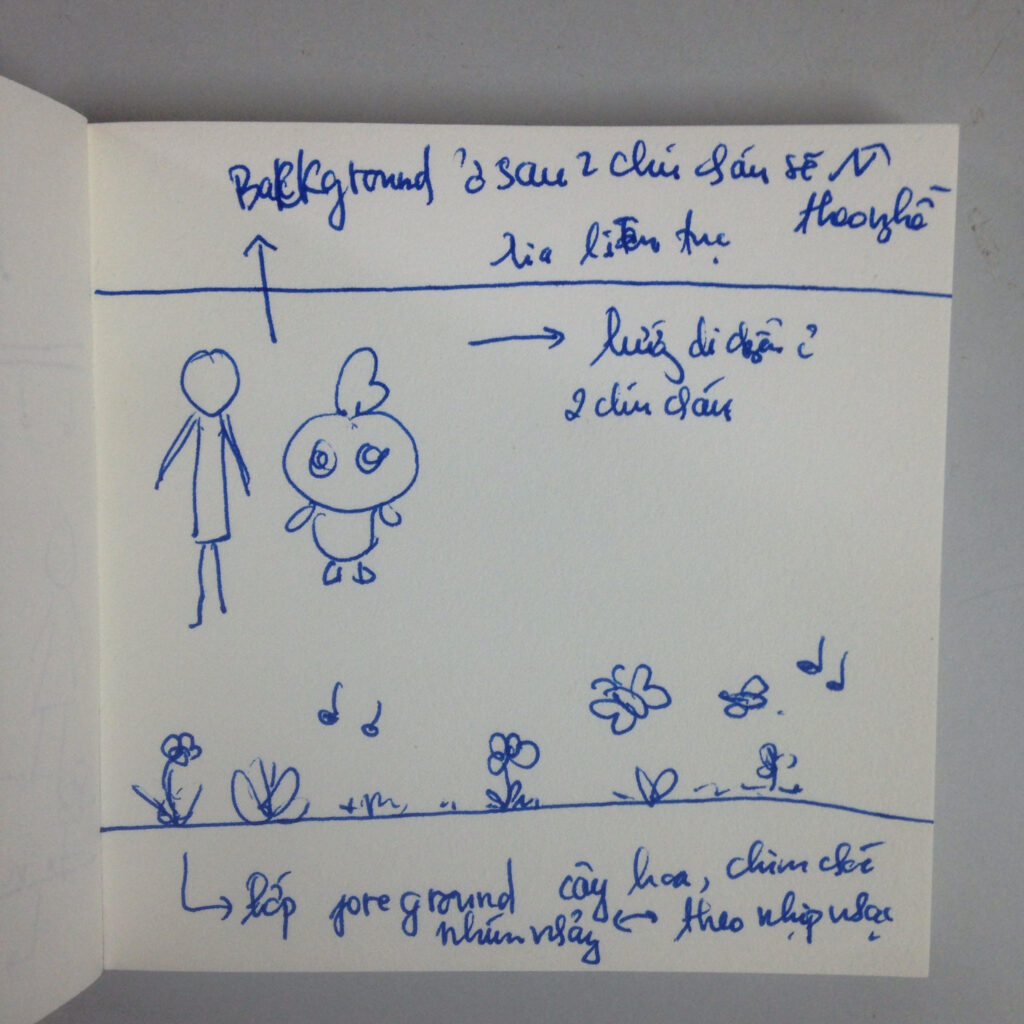 Background ở sau 2 chú cháu sẽ
lia liên tục
hướng di chuyển ở
2 chú cháu
lớp foreground cây hoa, chim chóc
nhún nhảy ↔ theo nhịp nhạc